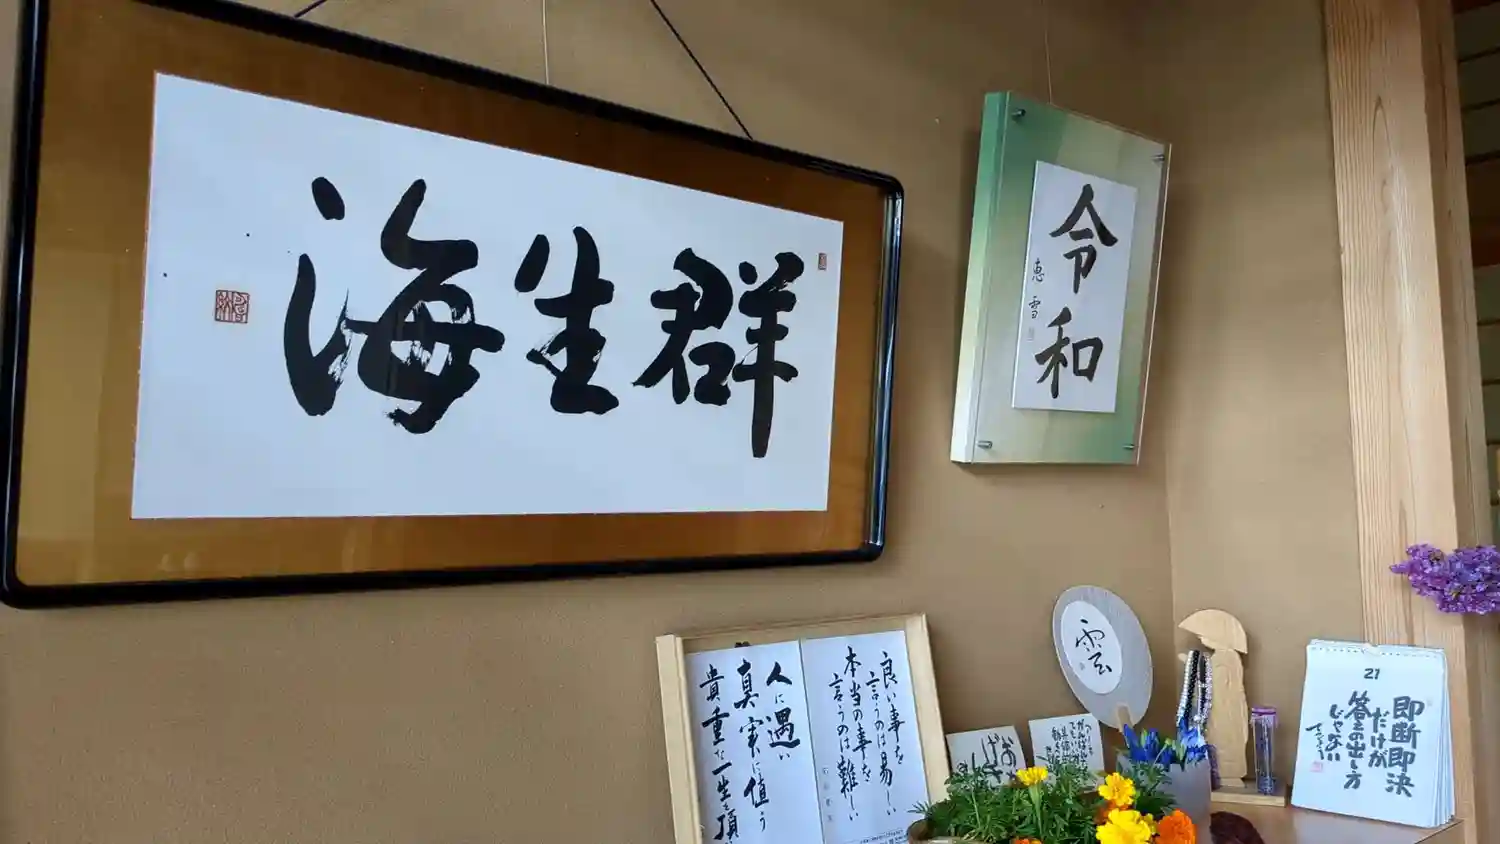 海生群
令和
恵雪
人に遇い
真実に値う
貴重な一生を頂
良い事を
言うのは易しい
本当の事を
言うのは難しい
雲
21
即断即決
だけが
答えの出し方
じゃない